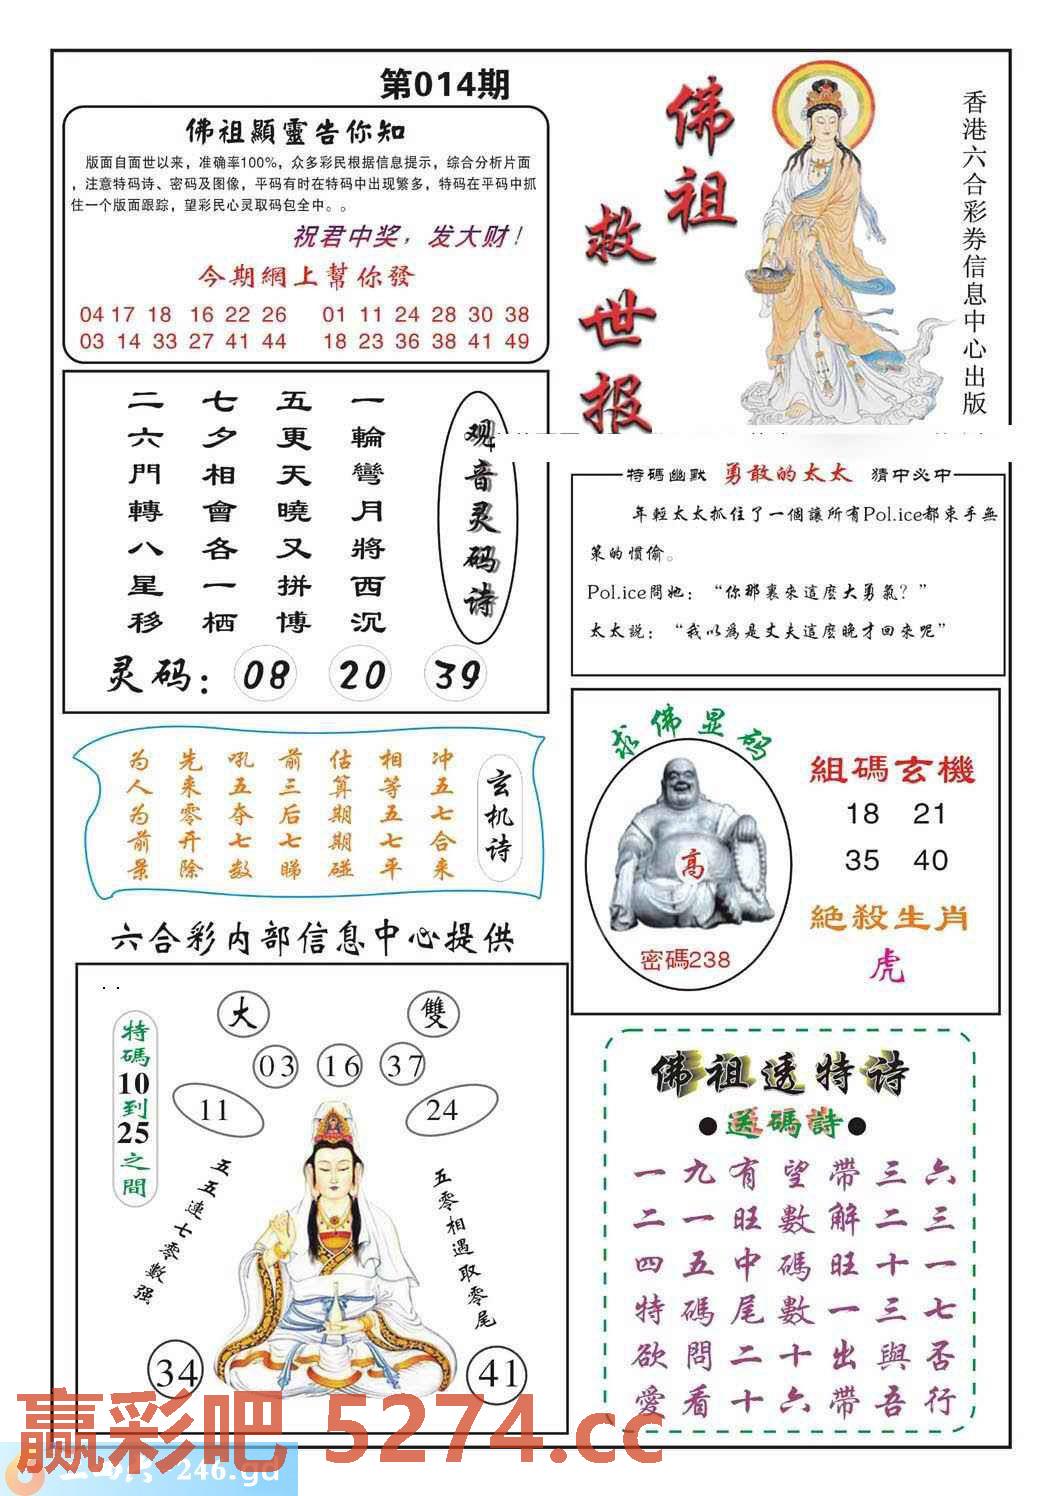 第014期
佛祖顯靈告你知
版面自面世以来，准确率100%，众多彩民根据信息提示，综合分析片面
，注意特码诗、密码及图像，平码有时在特码中出现繁多，特码在平码中抓
住一个版面跟踪，望彩民心灵取码包全中。。
祝君中奖，发大财！
今期網上幫你發
04 17 18 16 22 26 01 11 24 28 30 38
03 14 33 27 41 44 18 23 36 38 41 49
佛祖
救世报
香港六合彩券信息中心出版
观音灵码诗
一輪彎月將西沉
五更天曉又拼博
七夕相會各一栖
二六門轉八星移
灵码：08 20 39
特碼幽默 勇敢的太太 猜中必中
年輕太太抓住了一個讓所有Pol.ice都束手無
策的惯偷。
Pol.ice問她：“你那裏來這麼大勇氣？”
太太説：“我以為是丈夫這麼晚才回來呢”
玄机诗
冲五七合来
相等五七平
估算期期碰
前三后七睇
吼五夺七数
先来零开除
为人为前景
求佛显码
高
密碼238
組碼玄機
18 21
35 40
絕殺生肖
虎
六合彩内部信息中心提供
大 雙
03 16 37
11 24
特碼10到25之間
五五連七零數强
五零相遇取零尾
34 41
佛祖透特诗
●送碼詩●
一九有望帶三六
二一旺數解二三
四五中碼旺十一
特碼尾數一三七
欲問二十出與否
愛看十六帶吾行
赢彩吧 5274.cc
246.gd